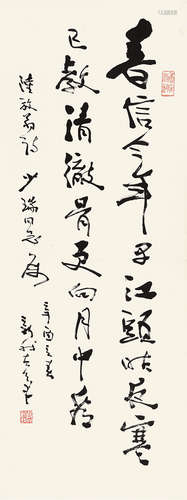 春信今年早江頭昨夜寒
已教清徹骨更向月中看
陸放翁詩 少瑞同志屬
辛酉之春
新我左筆